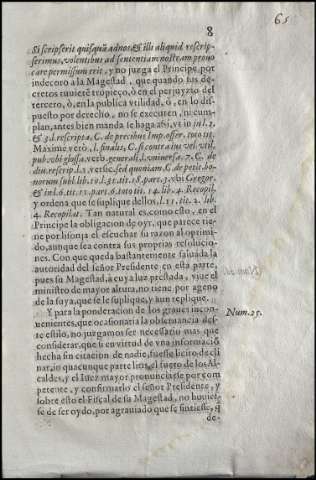 8
65
Si scripserit quisquā ad nos, & illi aliquid rescrip-
serimus, volentibus ad sententiam nostram prouo
care permissum erit, y no juzga el Principe, por
indecoro a la Magestad, que quando sus de-
cretos tuuieré tropieço, ò en el perjuyzio del
tercero, ò, en la publica vtilidad, ò, en lo dis-
puesto por derecho, no se executen, ni cum-
plan, antes bien manda se haga assi, vt in l. 2.
& 3. l. rescripta, C. de precibus Imp. offer. toto tit.
Maxime verò, l. finalis, C. si contra ius vel vtil.
pub. vbi glossa, verb. generali, l. vniuersa. 7. C. de
diu. rescrip. l. 2. versic. sed quoniam C. de petit. bo-
norum subl. lib. 10. l. 31. tit. 18. part. 3. vbi Gregor.
& in l. 6. tit. 15. par. 6. toto tit. 14. lib. 4. Recopil.
y ordena que se suplique dellos, l. 11. tit. 2. lib.
4. Recopilat. Tan natural es, como esto, en el
Principe la obligacion de oyr, que parece tie-
ne por lisonja el escuchar su razon al oprimi-
do, aunque sea contra sus proprias resolucio-
nes. Con que queda bastantemente saluada la
autoridad del señor Presidente en esta parte,
pues su Magestad, à cuya luz prestada, viue el
ministro de mayor altura, no tiene por ageno
de la suya, que se le suplique, y aun replique.
Y para la ponderacion de los graues incon-
uenientes, que ocasionaria la obseruancia des-
te estilo, no juzgamos ser necessario mas que
considerar, que si en virtud de vna informació
hecha sin citacion de nadie, fuesse licito decli
nar, in quacunque parte litis, el fuero de los Al-
caldes, y el Iuez mayor pronunciarse por com
petente, y confirmarlo el señor Presidente, y
sobre esto el Fiscal de su Magestad, no huuies-
se de ser oydo, por agrauiado que se sintiesse, q̄
de-
Num. 25.